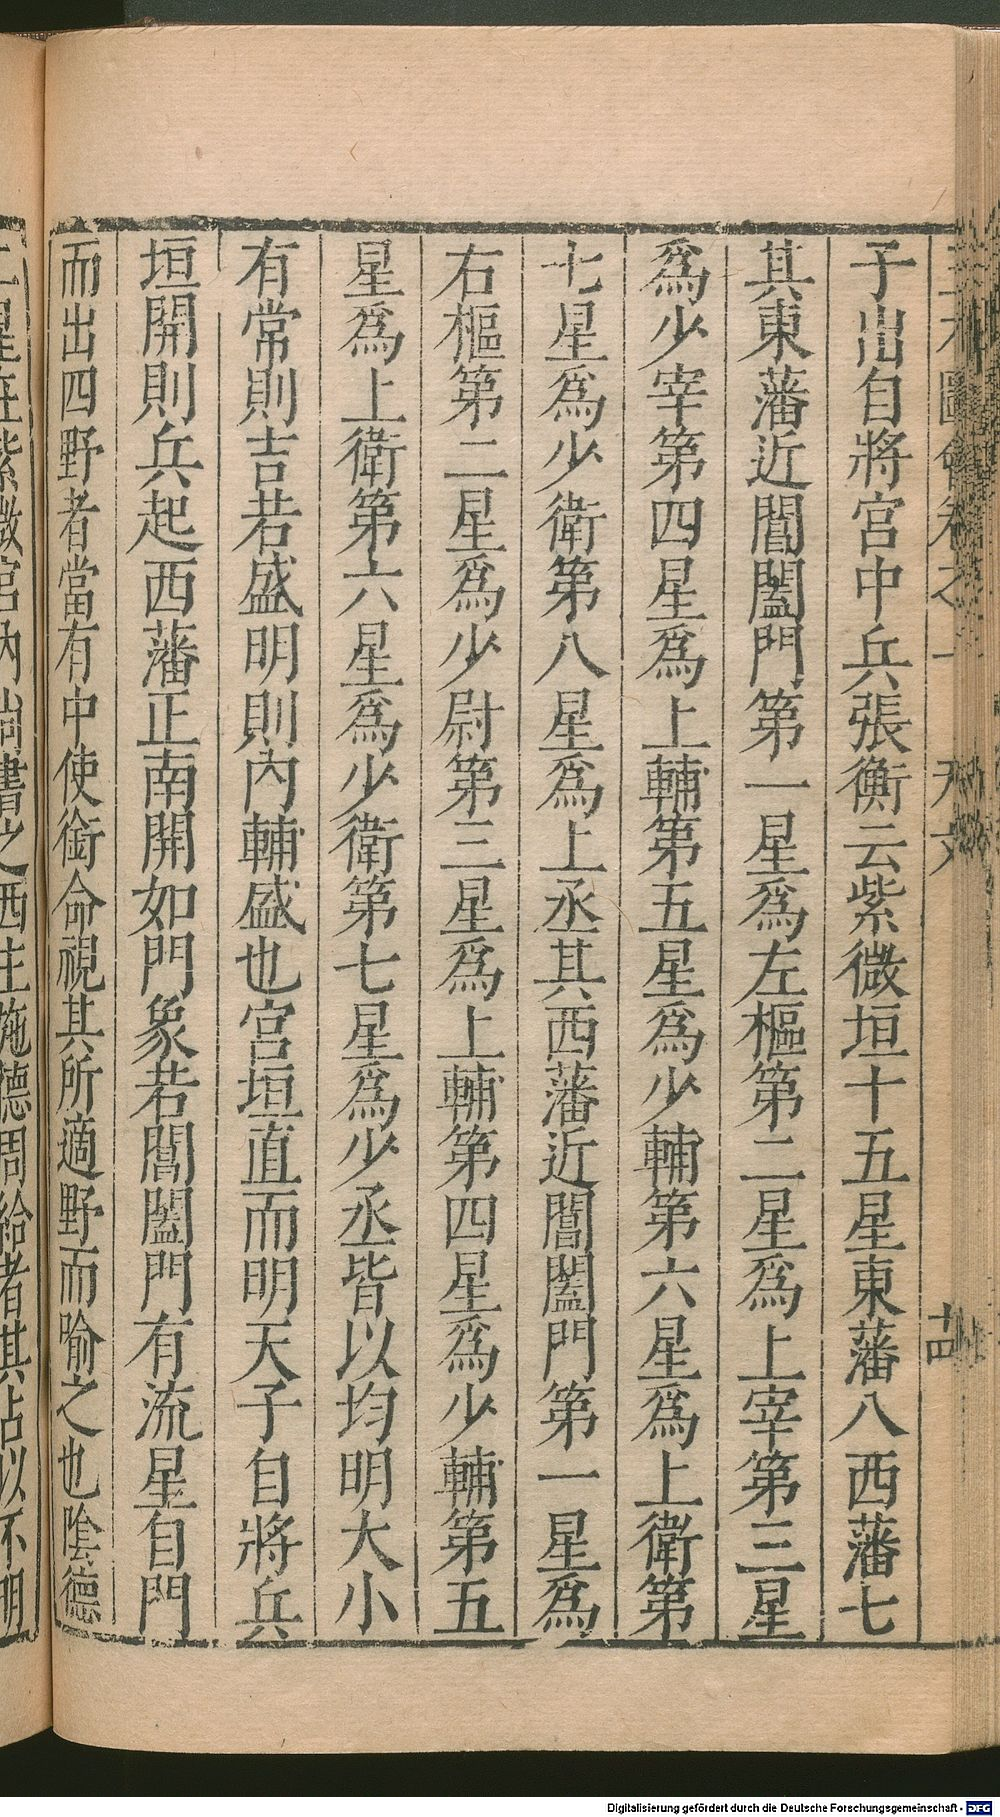 子出自將宮中兵張衡云紫微垣十五星東藩八西藩七
其東藩近閶闔門第一星爲左樞第二星爲上宰第三星
爲少宰第四星爲上輔第五星爲少輔第六星爲上衛第
七星爲少衛第八星爲上丞其西藩近閶闔門第一星爲
右樞第二星爲少尉第三星爲上輔第四星爲少輔第五
星爲上衛第六星爲少衛第七星爲少丞皆以均明大小
有常則吉若盛明則內輔盛也宮垣直而明天子自將兵
垣開則兵起西藩正南開如門象若閶闔門有流星自門
而出四野者當有中使銜命視其所適野而喻之也陰德
二星在紫微宮內尚書之西主施德周給者其占以不明
圖會卷之一 天文 十四
Digitalisierung gefördert durch die Deutsche Forschungsgemeinschaft - DFG